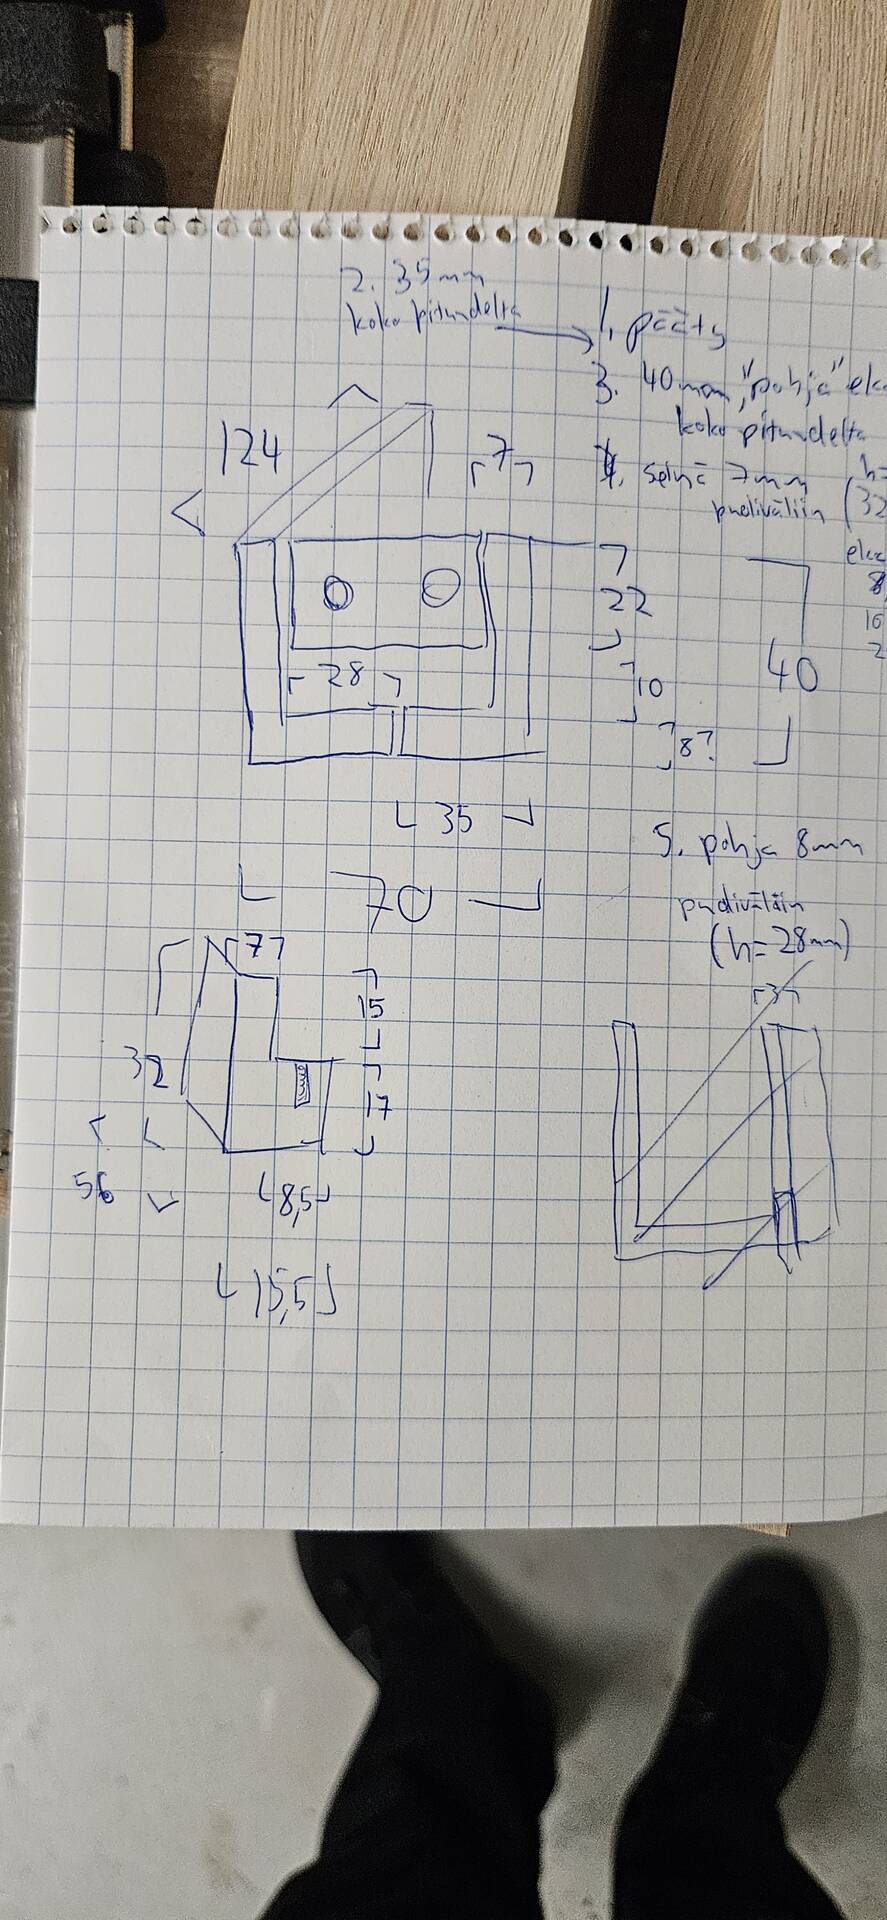 2. 35mm
koko pituudelta
1. pääty
3. 40mm, "pohja"
koko pituudelta
124
7
4. seinä 7mm
puolivāliin (32
7
22
28
10
40
8?
35
70
5. pohja 8mm
puoliväliin
(h=28mm)
7
3
15
32
17
56
8,5
15,5